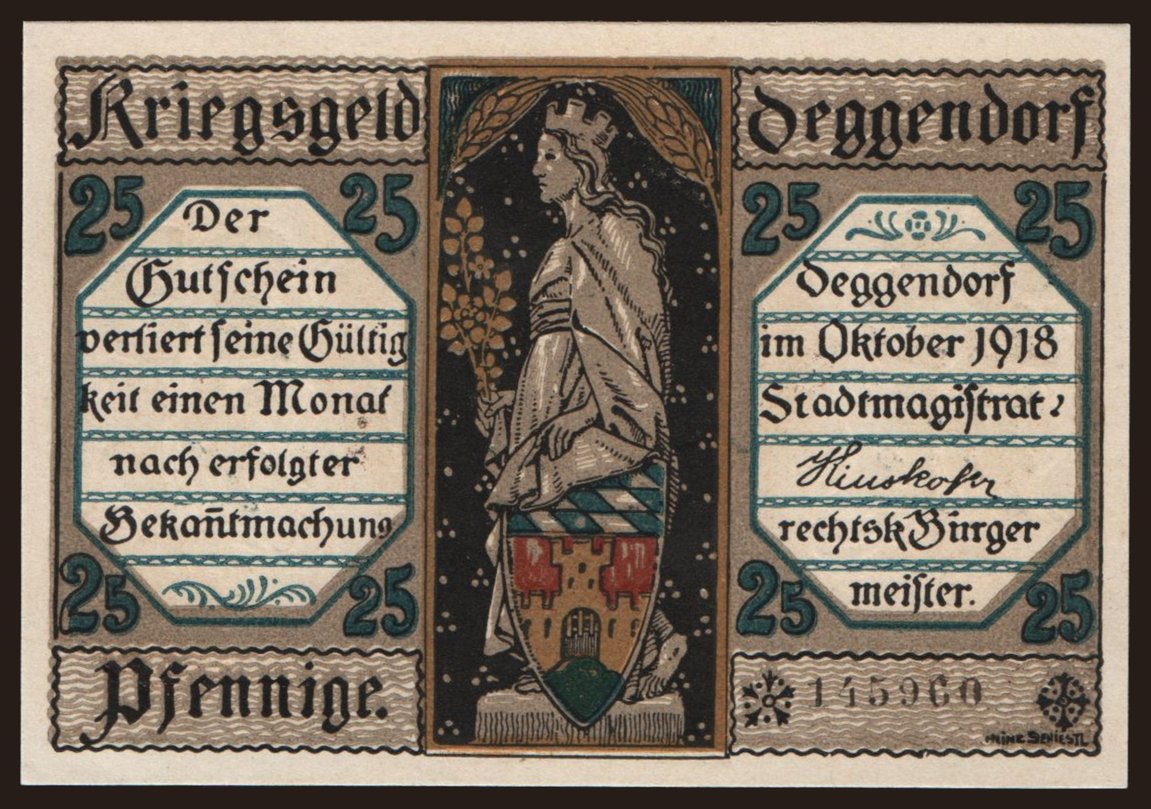 Kriegsgeld
Deggendorf
25
25
Der
Gutschein
verliert seine Gültig
keit einen Monat
nach erfolgter
Bekan̄tmachung
25
25
25
25
Deggendorf
im Oktober 1918
Stadtmagistrat:
rechtsk Bürger
meister.
25
25
Pfennige.
145960
HEINZ SCHIESTL